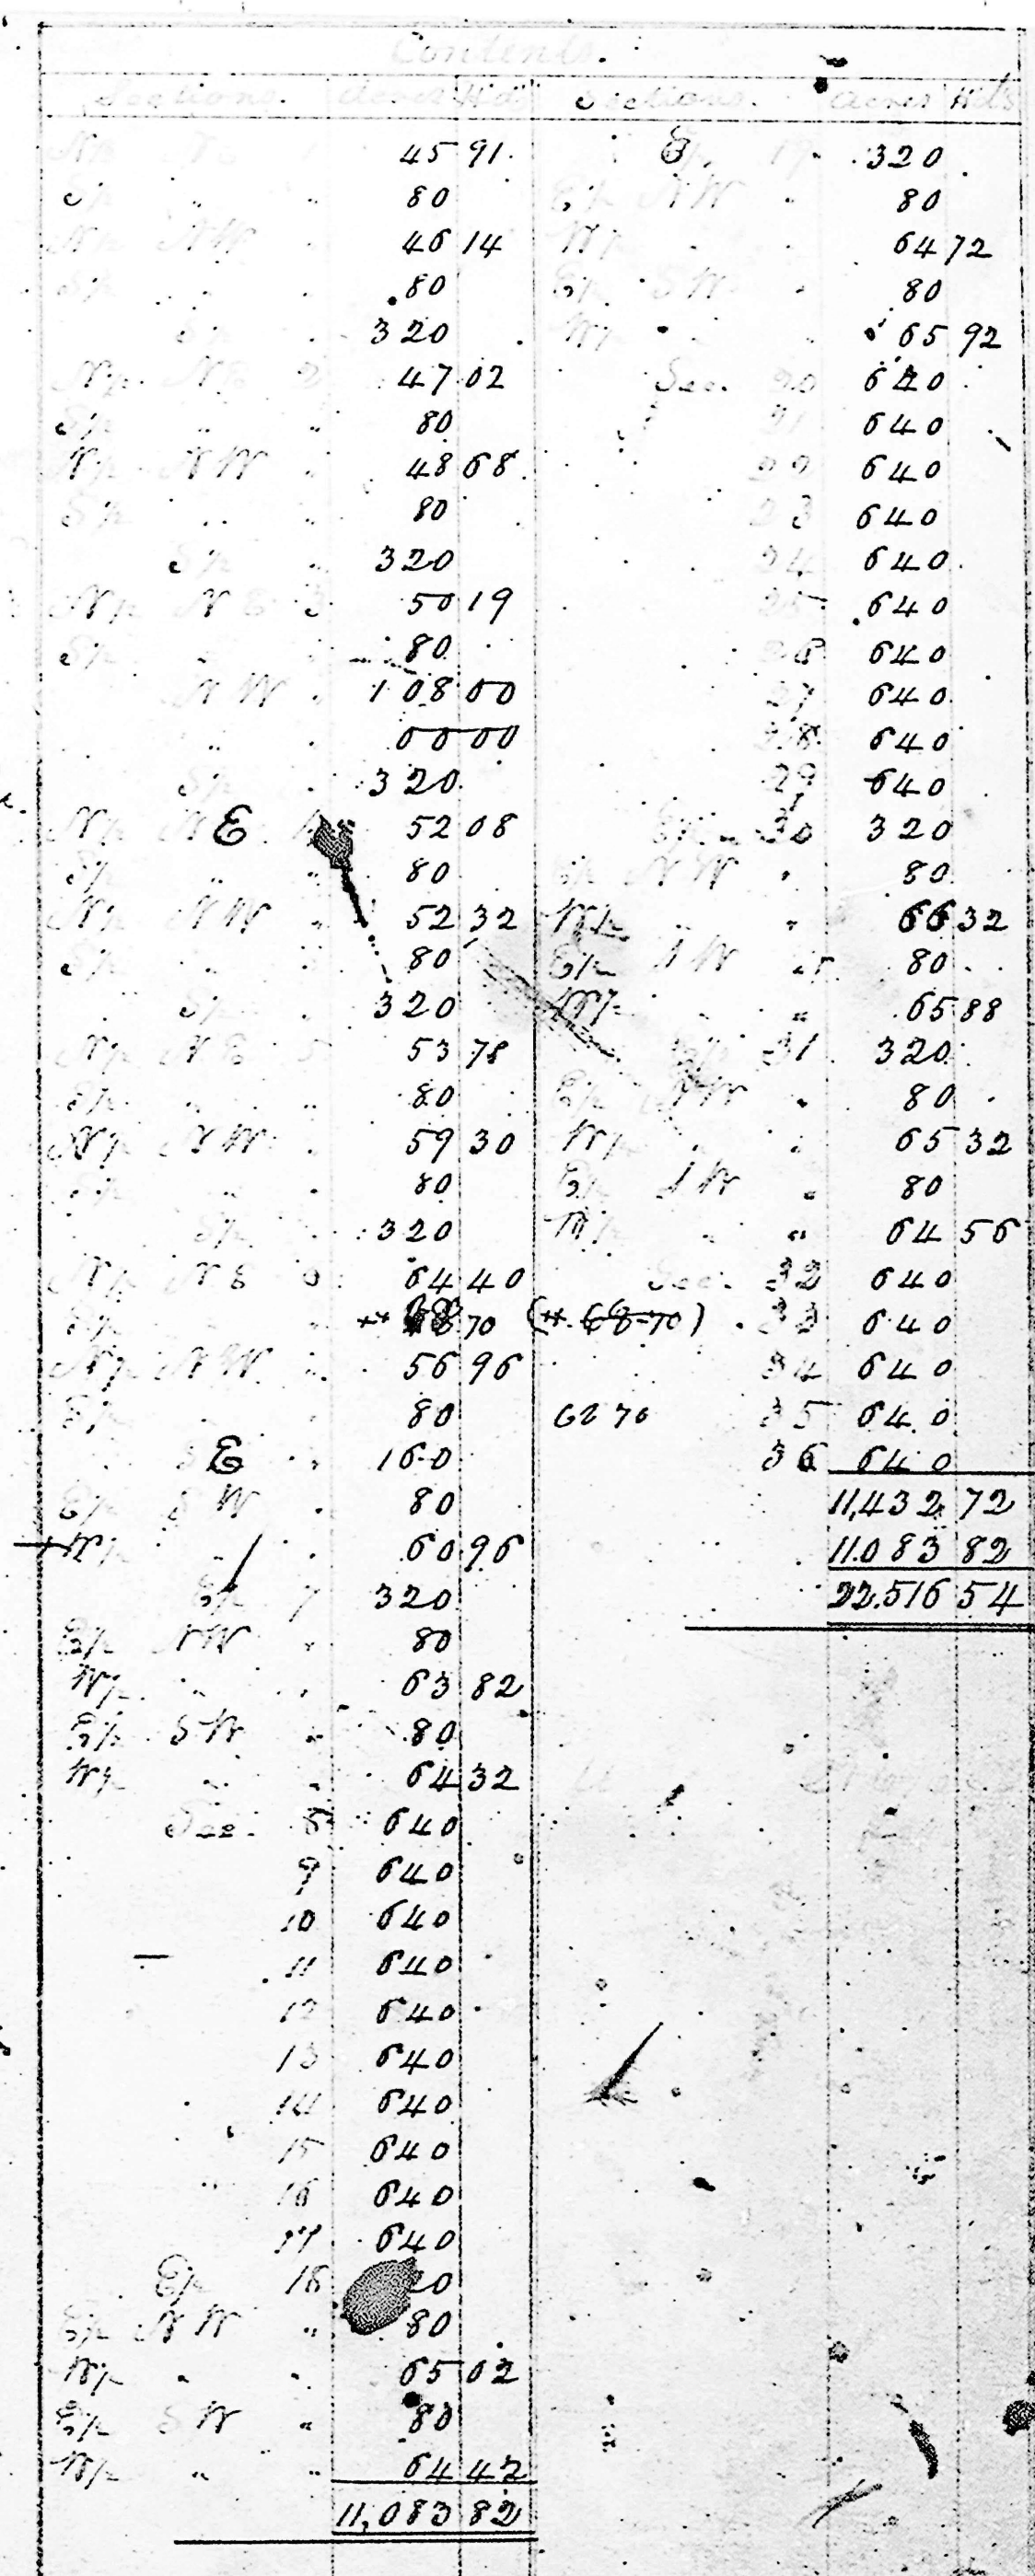 Contents.
Sections. Acres Hds Sections. Acres Hds
45 91. 19 320
80 NW 80
NW 46 14 64 72
80 SW 80
320 65 92
N½ NE 2 47 02 Sec. 20 640
S½ " " 80 21 640
N½ NW " 48 68 22 640
S½ " " 80 23 640
S½ " 320 24 640
N½ NE 3 50 19 25 640
S½ " 80 26 640
NW " 108 00 27 640
" 00 00 28 640
S½ 320 29 640
N½ NE 52 08 E½ 30 320
S½ " " 80 E½ NW " 80
N½ NW " 52 32 W½ " " 66 32
S½ " " 80 E½ SW " 80
S½ " 320 W½ " " 65 88
N½ NE 5 53 78 E½ 31 320
S½ " " 80 E½ NW " 80
N½ NW " 59 30 W½ " " 65 32
" " 80 E½ SW " 80
S½ 320 W½ " " 64 56
N½ NE 6 64 40 Sec. 32 640
S½ 70 (# 68-70) 33 640
N½ NW " 56 96 34 640
S½ 80 62 70 35 640
SE " 160 36 640
E½ SW " 80 11,432 72
W½ " " 60 96 11.083 82
E½ 7 320 22.516 54
E½ NW " 80
W½ " " 63 82
E½ SW " 80
W½ " " 64 32
Sec. 8 640
9 640
10 640
11 640
12 640
13 640
14 640
15 640
16 640
17 640
E½ 18 20
E½ NW " 80
W½ " " 65 02
E½ SW " 80
W½ " " 64 42
11,083 82